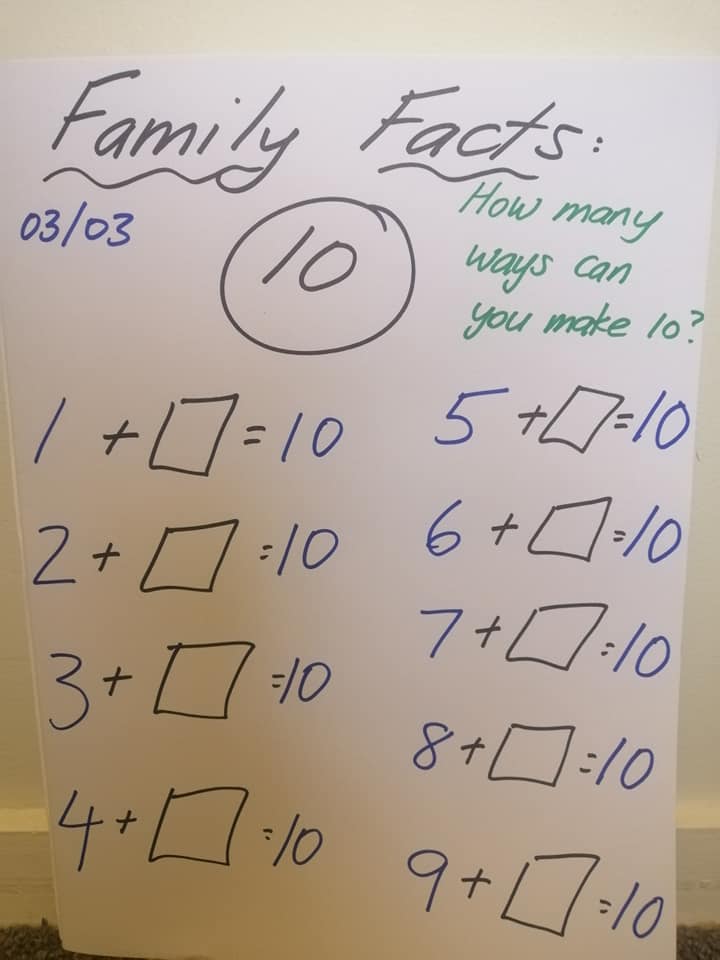 Family Facts:
03/03
10
How many
ways can
you make 10?
1 + □ = 10
2 + □ = 10
3 + □ = 10
4 + □ = 10
5 + □ = 10
6 + □ = 10
7 + □ = 10
8 + □ = 10
9 + □ = 10